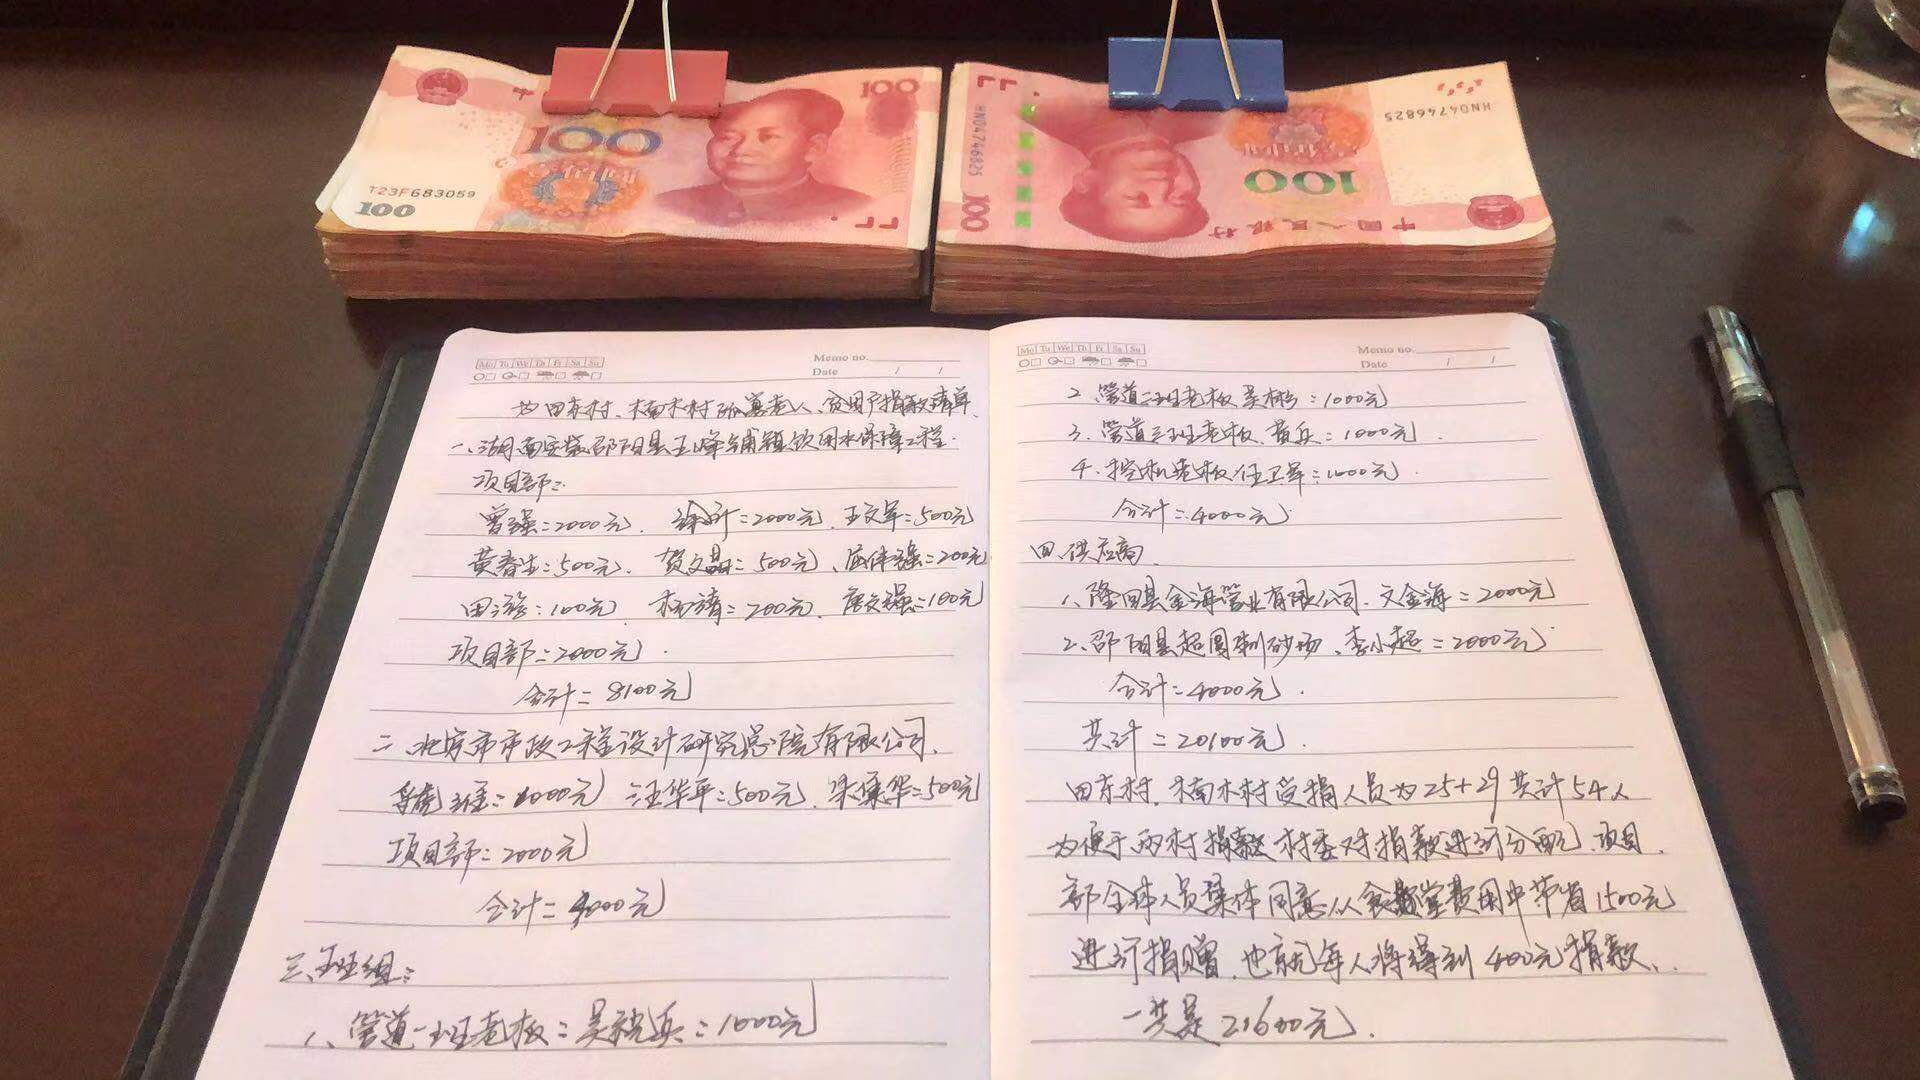 100
100
T23F683059
100
HN04746825
HN04746825
100
100
中国人民银行
Mo Tu We Th Fr Sa Su
Memo no.
Date / /
为田东村、楠木村孤寡老人、贫困户捐款清单
一、湖南安装邵阳县五峰铺镇饮用水保障工程
项目部:
曾强:2000元、 :2000元、王文军:500元
黄春生:500元、贺文晶:500元、伟强:200元
田 :100元、杨靖:200元、唐文强:100元
项目部:2000元.
合计=8100元
二、北京市市政工程设计研究总院有限公司、
:1000元 汪华平:500元、 华:500元
项目部:2000元
合计=4000元
三、班组:
1、管道一班老板:吴 兵:1000元
Mo Tu We Th Fr Sa Su
Memo no.
Date / /
2、管道二班老板吴彬:1000元
3、管道三班老板、黄兵:1000元.
4、挖机老板任卫军:1000元.
合计=4000元
四、供应商
1、隆回县金海管业有限公司、文金海=2000元
2、邵阳县超围制砂场、李小超=2000元
合计=4000元.
共计=20100元.
田东村、楠木村受捐人员为25+29共计54人
为便于两村捐款村委对捐款进行分配、项目
部全体人员集体同意从食堂费用中节省1500元
进行捐赠、也就每人将得到400元捐款、
一共是21600元.